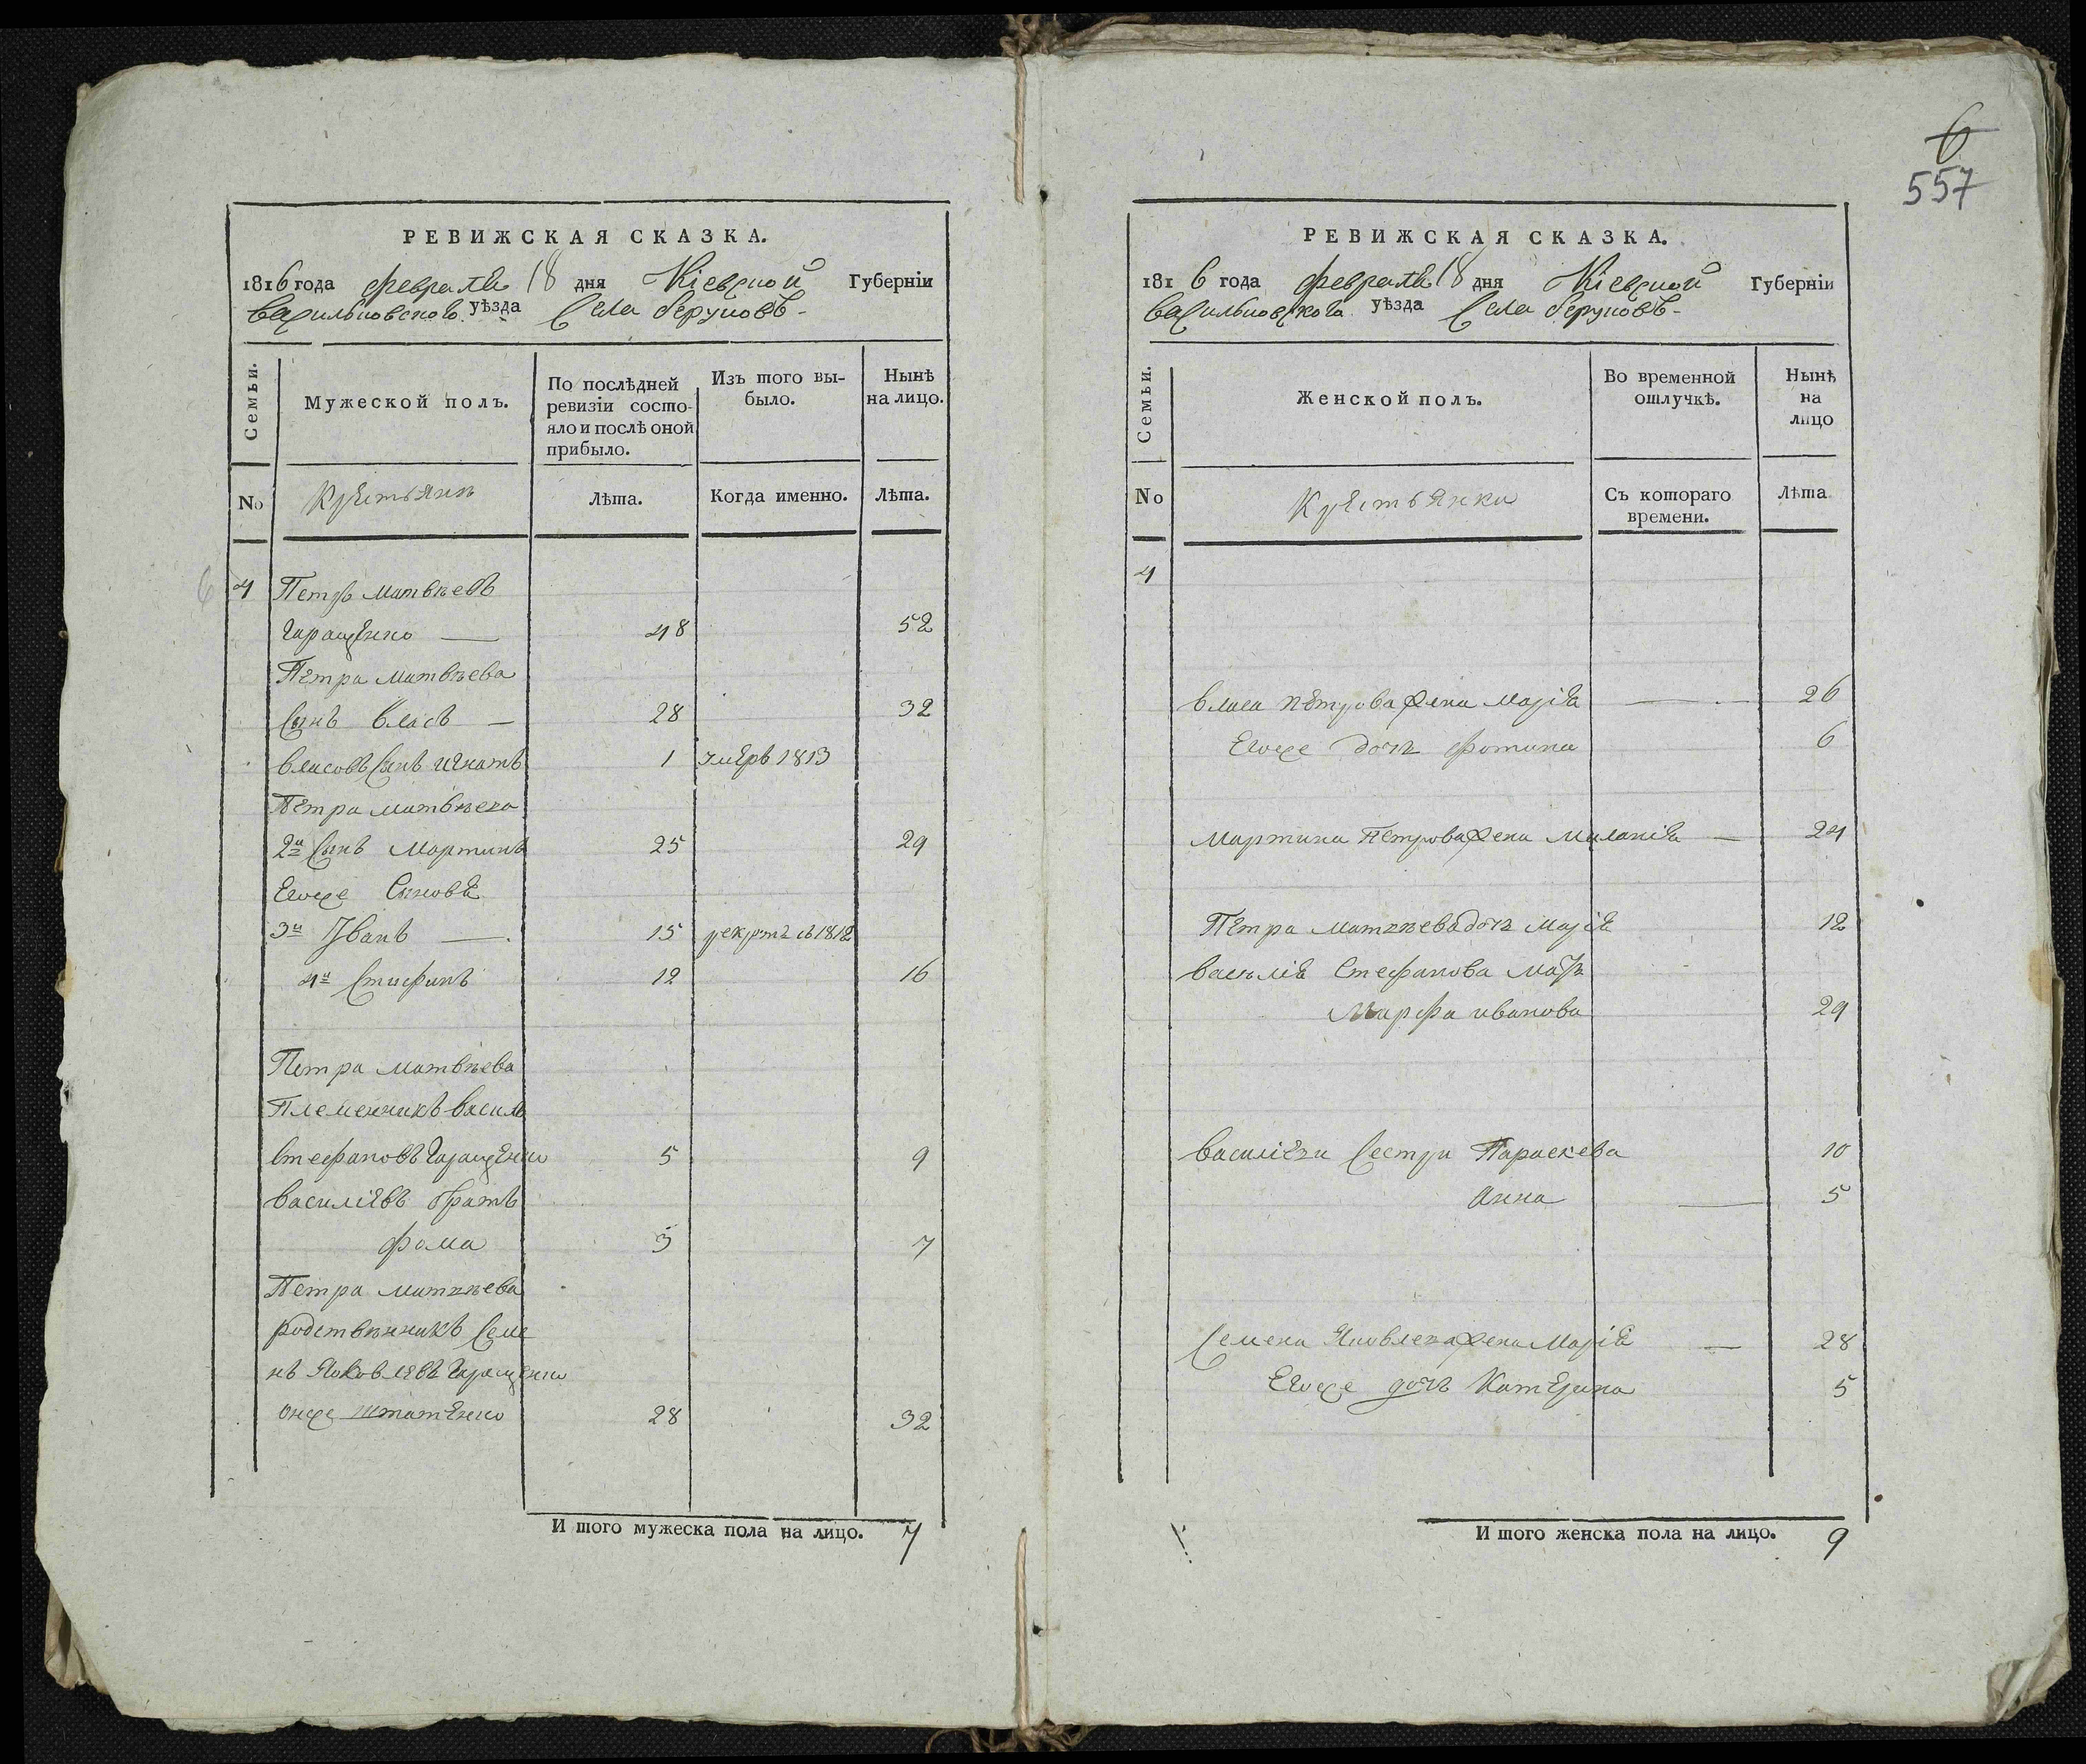 6
557
РЕВИЖСКАЯ СКАЗКА.
1816 года февраля 18 дня Кіевской Губерніи
васильковского уѣзда Села
Семьи.
Мужеской полъ.
По послѣдней ревизіи состо-
яло и послѣ оной
прибыло.
Изъ того вы-
было.
Нынѣ
на лицо.
No
Крестьяне
Лѣта.
Когда именно.
Лѣта.
6 4 Петръ матвѣевъ
Гаращенко — 48 52
Петра матвѣева
Сынъ власъ — 28 32
власовъ Сынъ игнатъ 1 умеръ 1813
Петра матвѣева
2й Сынъ Мартинъ 25 29
Егоже Сыновя
3й Иванъ — 15 рекрутъ въ 1812
4й Стефанъ 12 16
Петра матвѣева
Племенникъ василь
Стефановъ Гаращенко 5 9
василіевъ братъ
фома 3 7
Петра матвѣева
родственникъ Семе
нъ Яковлевъ Гаращенко
онже 28 32
И того мужеска пола на лицо. 7
РЕВИЖСКАЯ СКАЗКА.
1816 года февраля 18 дня Кіевской Губерніи
васильковского уѣзда Села
Семьи.
Женской полъ.
Во временной
отлучкѣ.
Нынѣ
на
лицо
No
Крестьянки
Съ котораго
времени.
Лѣта
4
власа петрова жена Марія — 26
Егоже дочь фотина 6
Мартина Петрова жена Миланія — 24
Петра матвѣева дочь Марія 12
василія Стефанова мать
Марфа иванова 29
василіева Сестра Параскева 10
Анна — 5
Семена Яковлева жена Марія — 28
Егоже дочь Катерина 5
И того женска пола на лицо. 9